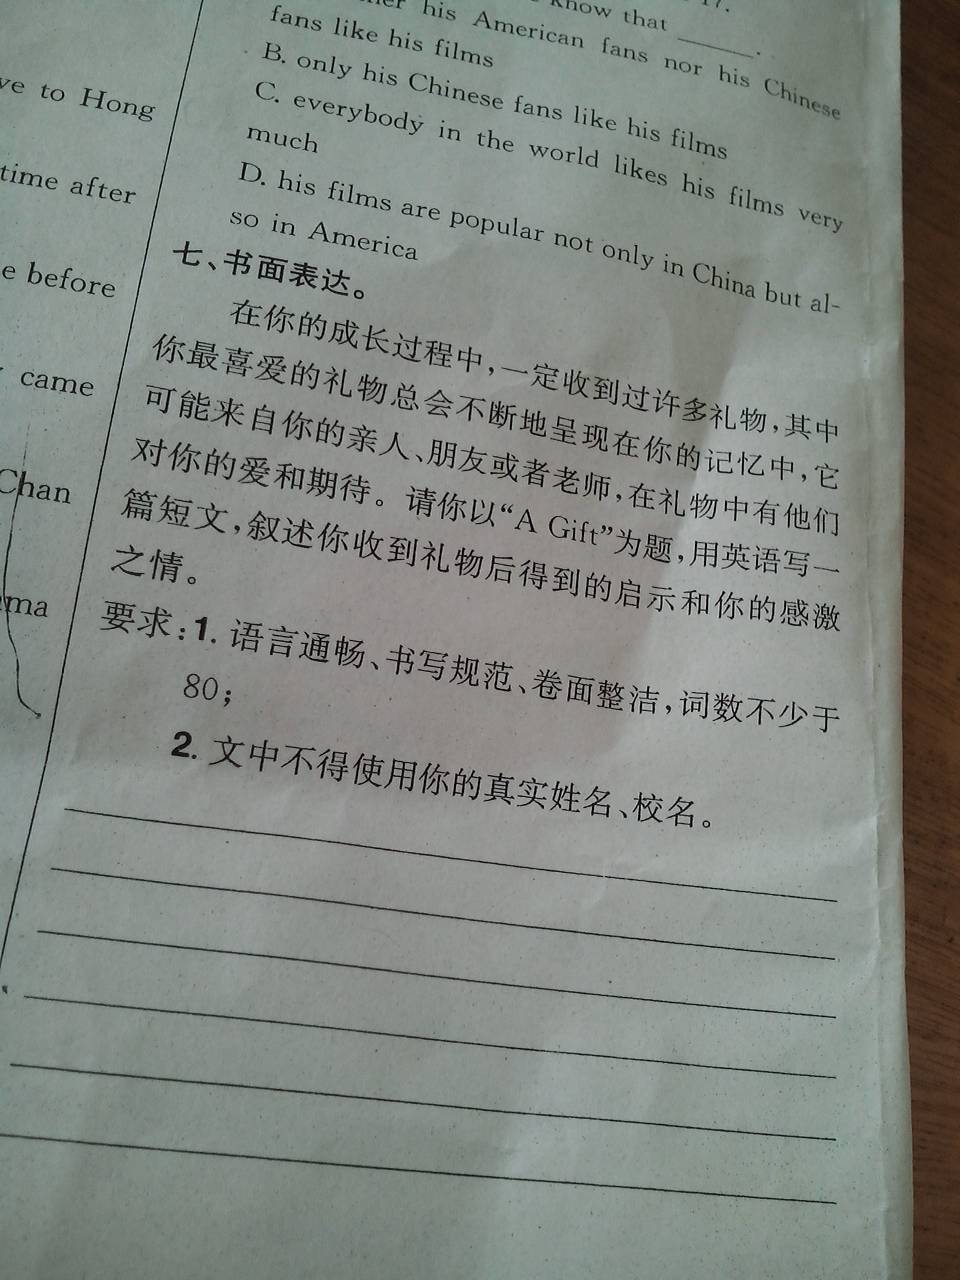 ve to Hong
time after
e before
came
Chan
ma
know that ______.
his American fans nor his Chinese
fans like his films
B. only his Chinese fans like his films
C. everybody in the world likes his films very
much
D. his films are popular not only in China but al-
so in America
七、书面表达。
在你的成长过程中,一定收到过许多礼物,其中
你最喜爱的礼物总会不断地呈现在你的记忆中,它
可能来自你的亲人、朋友或者老师,在礼物中有他们
对你的爱和期待。请你以“A Gift”为题,用英语写一
篇短文,叙述你收到礼物后得到的启示和你的感激
之情。
要求:1. 语言通畅、书写规范、卷面整洁,词数不少于
80;
2. 文中不得使用你的真实姓名、校名。